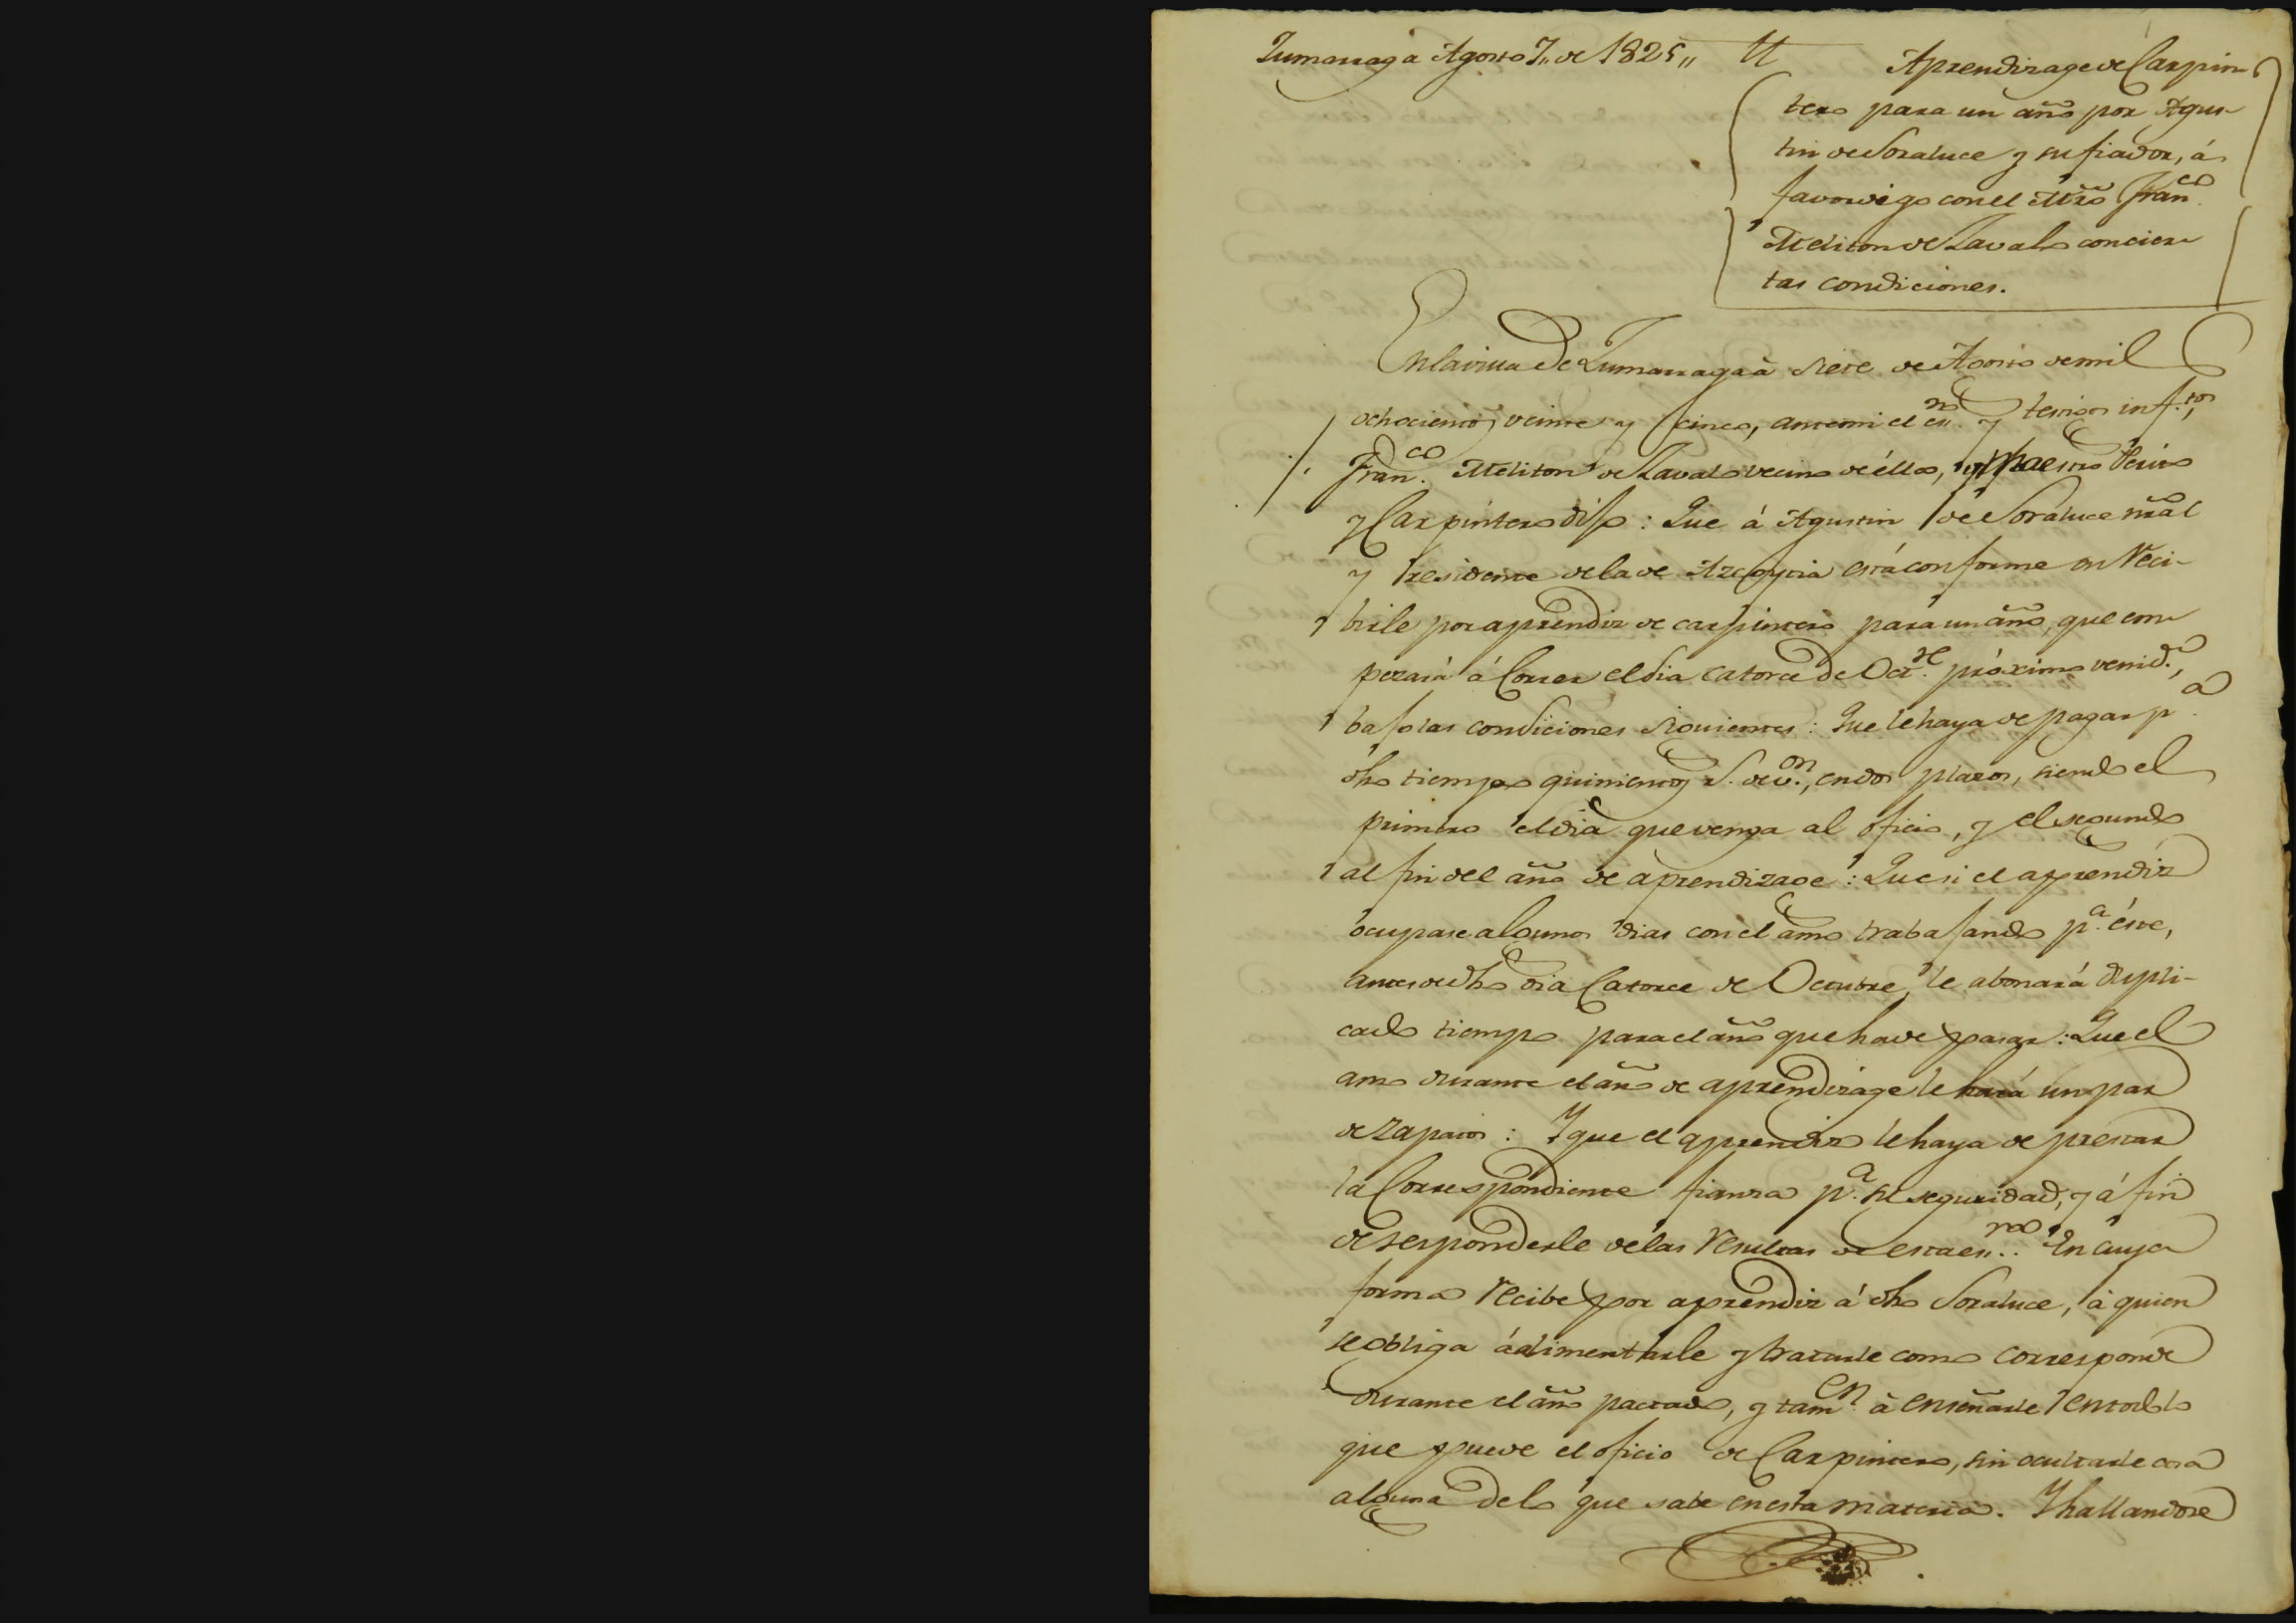 Zumarraga Agosto 7,, de 1825,,
Aprendizage de Carpin-
tero para un año por Agus-
tin de Soraluce y su fiador, á
favor digo con el Mrõ Fran.co
Meliton de Zavalo con cier-
tas condiciones.
En la villa de Zumarraga à siete de Agosto de mil
ochocientos veinte y cinco, ante mi el esno. y testigos inf.tos,
Fran.co Meliton de Zavalo vecino de élla, y Maestro Perito
y Carpintero dijo: Que á Agustin de Soraluce nrãl
y residente de la de Azcoytia está conforme en reci-
birle por aprendiz de carpintero para un año, que em-
pezará á correr el dia catorce de Oct.re próximo venid.o,
bajo las condiciones siguientes: Que le haya de pagar p.a
dho tiempo quinientos r.s de v.on, en dos plazos, siendo el
primero el dia que venga al oficio, y el segundo
al fin del año de aprendizage: Que si el aprendiz
ocupase algunos dias con el amo trabajando p.a éste,
antes de dho dia Catorce de Octubre, le abonará dupli-
cado tiempo para el año que ha de pasar: Que el
amo durante el año de aprendizage le hará un par
de zapatos: Y que el aprendiz le haya de prestar
la Correspondiente fianza p.a su seguridad, y á fin
de responderle de las resultas de esta es.ra. En cuya
forma recibe por aprendiz á dho Soraluce, à quien
se obliga á alimentarle y tratarle como corresponde
durante el año pactado, y tam.en à enseñarle en todo lo
que puede el oficio de Carpintero, sin ocultarle cosa
alguna de lo que sabe en esta materia. Y hallandose